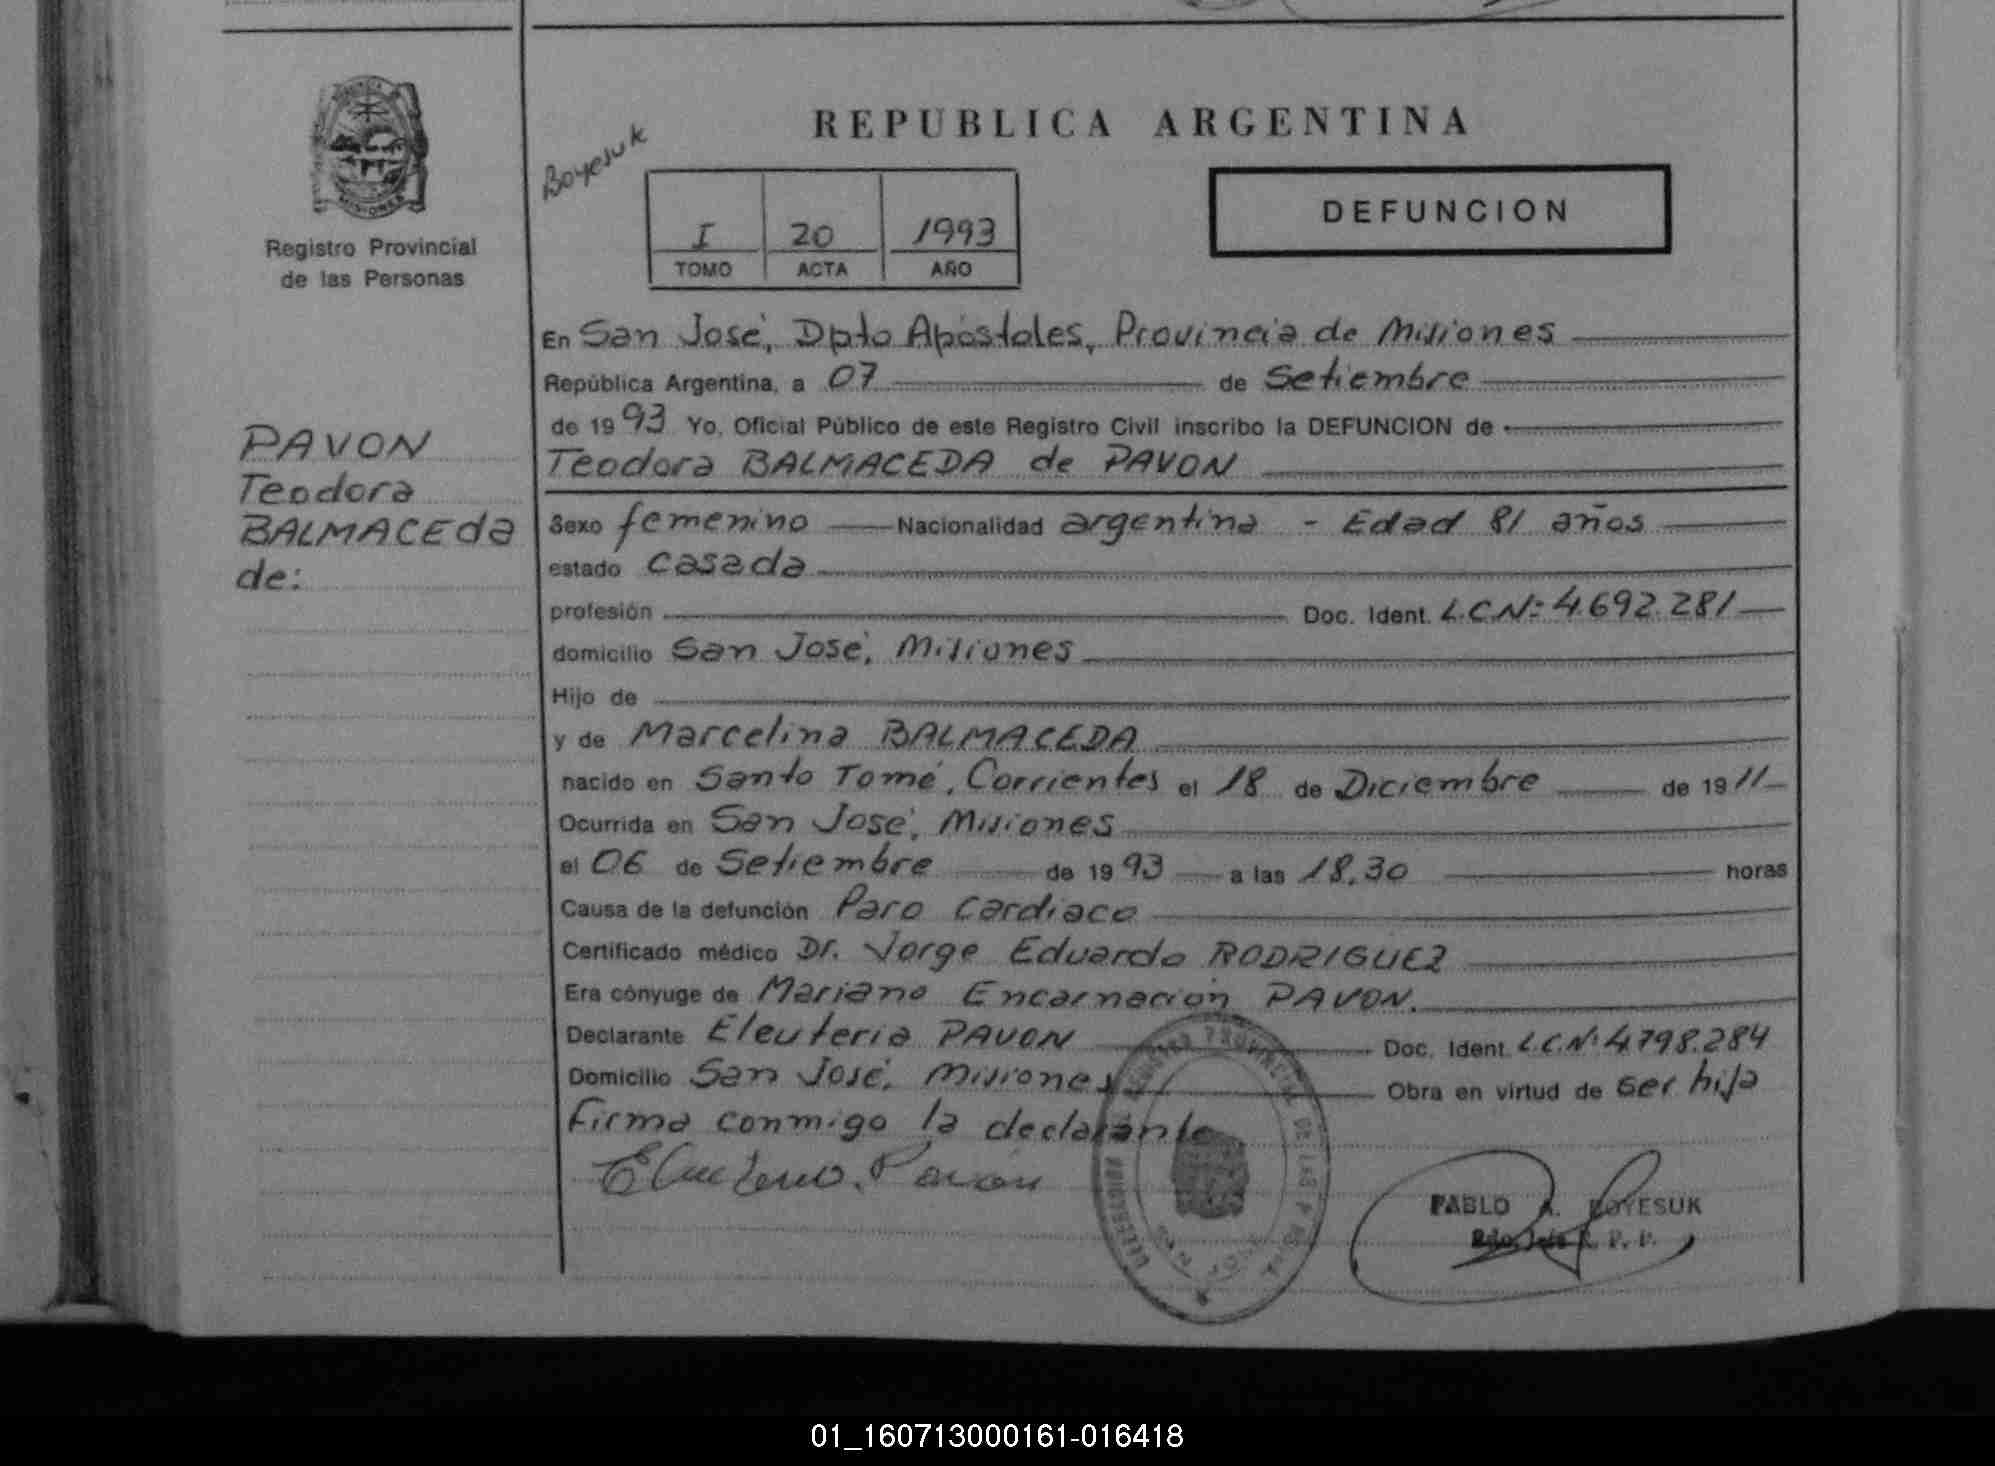 MISIONES
Registro Provincial
de las Personas
PAVON
Teodora
BALMACEda
de:
REPUBLICA ARGENTINA
Boyesuk
I 20 1993
TOMO ACTA AÑO
DEFUNCION
En San José, Dpto Apóstoles, Provincia de Misiones
República Argentina, a 07 de Setiembre
de 1993 Yo, Oficial Público de este Registro Civil inscribo la DEFUNCION de
Teodora BALMACEDA de PAVON
Sexo femenino Nacionalidad argentina - Edad 81 años
estado casada
profesión Doc. Ident. L.C.Nº 4.692.281
domicilio San José, Misiones
Hijo de
y de Marcelina BALMACEDA
nacido en Santo Tomé, Corrientes el 18 de Diciembre de 1911
Ocurrida en San José, Misiones
el 06 de Setiembre de 1993 a las 18,30 horas
Causa de la defunción Paro Cardiaco
Certificado médico Dr. Jorge Eduardo RODRIGUEZ
Era cónyuge de Mariano Encarnación PAVON.
Declarante Eleuteria PAVON Doc. Ident. L.C.Nº 4.798.284
Domicilio San José, Misiones Obra en virtud de ser hija
Firma conmigo la declarante
Pavon
REGISTRO PROVINCIAL DE LAS
PABLO A. BOYESUK
R. P. P.
01_160713000161-016418